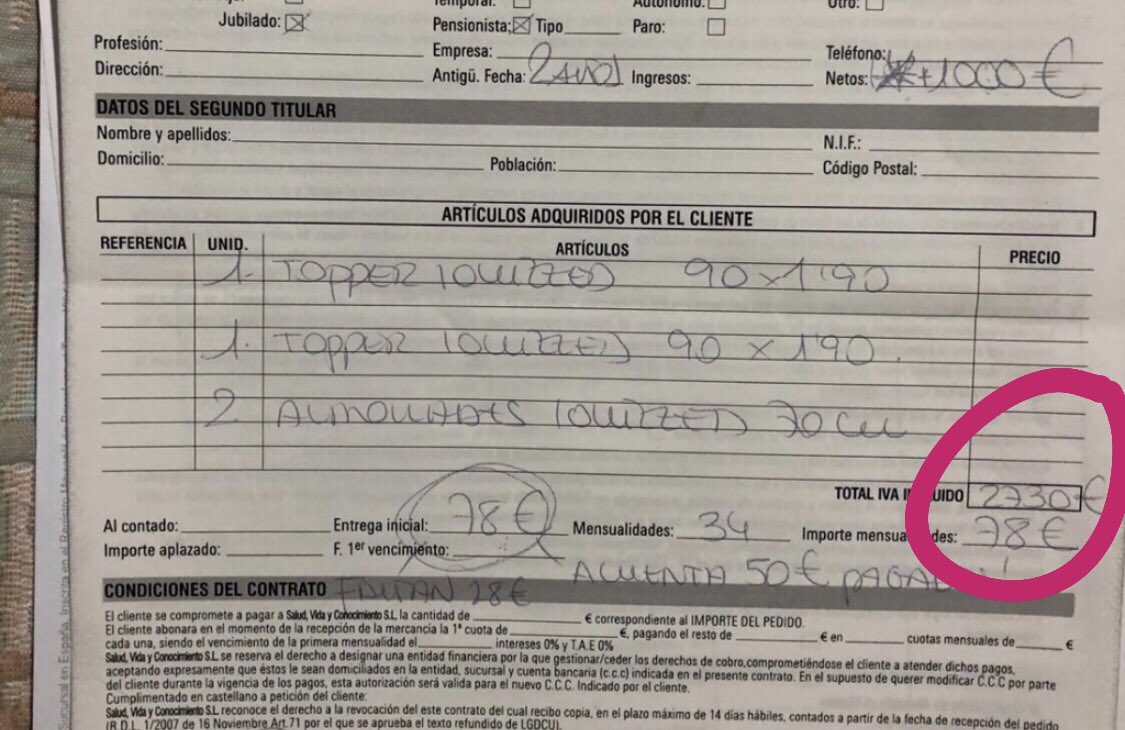 Jubilado: Pensionista: Tipo Paro:
Profesión: Empresa: Teléfono:
Dirección: Antigü. Fecha: 2 Ingresos: Netos: +1000 €
DATOS DEL SEGUNDO TITULAR
Nombre y apellidos: N.I.F.:
Domicilio: Población: Código Postal:
ARTÍCULOS ADQUIRIDOS POR EL CLIENTE
REFERENCIA UNID. ARTÍCULOS PRECIO
1. TOPPER IONIZZED 90 x 1'90
1. TOPPER IONIZZED 90 x 1'90.
2 IONIZZED 70 cm
TOTAL IVA 2730 €
Al contado: Entrega inicial: 78 € Mensualidades: 34 Importe 78 €
Importe aplazado: F. 1er vencimiento:
50 €
CONDICIONES DEL CONTRATO FALTAN 28 €
El cliente se compromete a pagar a Salud, Vida y Conocimiento S.L. la cantidad de € correspondiente al IMPORTE DEL PEDIDO.
El cliente abonara en el momento de la recepción de la mercancia la 1ª cuota de €, pagando el resto de € en cuotas mensuales de €
cada una, siendo el vencimiento de la primera mensualidad el intereses 0% y T.A.E 0%
Salud, Vida y Conocimiento S.L. se reserva el derecho a designar una entidad financiera por la que gestionar/ceder los derechos de cobro,comprometiéndose el cliente a atender dichos pagos,
aceptando expresamente que éstos le sean domiciliados en la entidad, sucursal y cuenta bancaria (c.c.c) indicada en el presente contrato. En el supuesto de querer modificar C.C.C por parte
del cliente durante la vigencia de los pagos, esta autorización será valida para el nuevo C.C.C. Indicado por el cliente.
Cumplimentado en castellano a petición del cliente:
Salud, Vida y Conocimiento S.L. reconoce el derecho a la revocación del este contrato del cual recibo copia, en el plazo máximo de 14 días hábiles, contados a partir de la fecha de recepción del pedido
(R.D.L. 1/2007 de 16 Noviembre Art.71 por el que se aprueba el texto refundido de LGDCU).